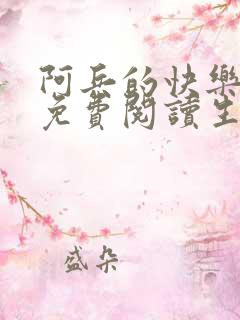 阿兵的快樂
免費閱讀生
盛朵